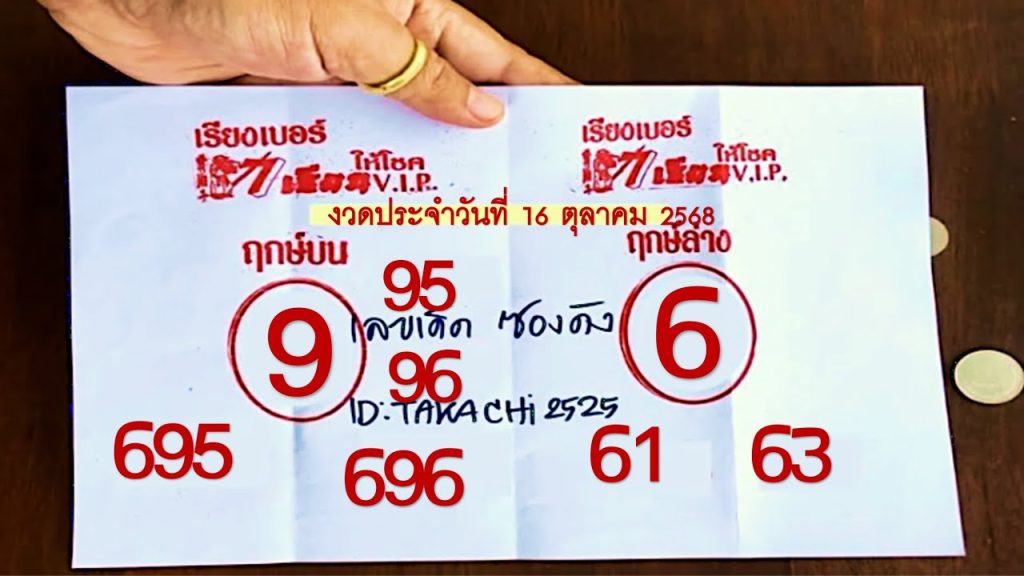 เรียงเบอร์
ให้โชค
V.I.P.
เรียงเบอร์
ให้โชค
V.I.P.
งวดประจำวันที่ 16 ตุลาคม 2568
ฤกษ์บน
ฤกษ์ล่าง
95
9
เลขเด็ด ซองดัง
6
96
ID:TAKACHi2525
695
696
61
63